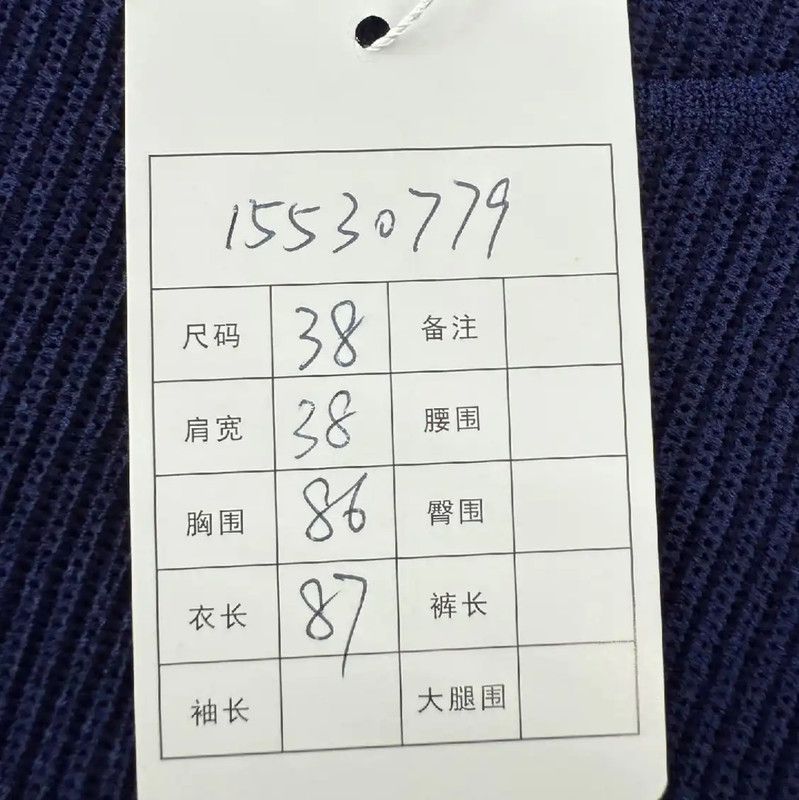 15530779
尺码 38 备注
肩宽 38 腰围
胸围 86 臀围
衣长 87 裤长
袖长 大腿围